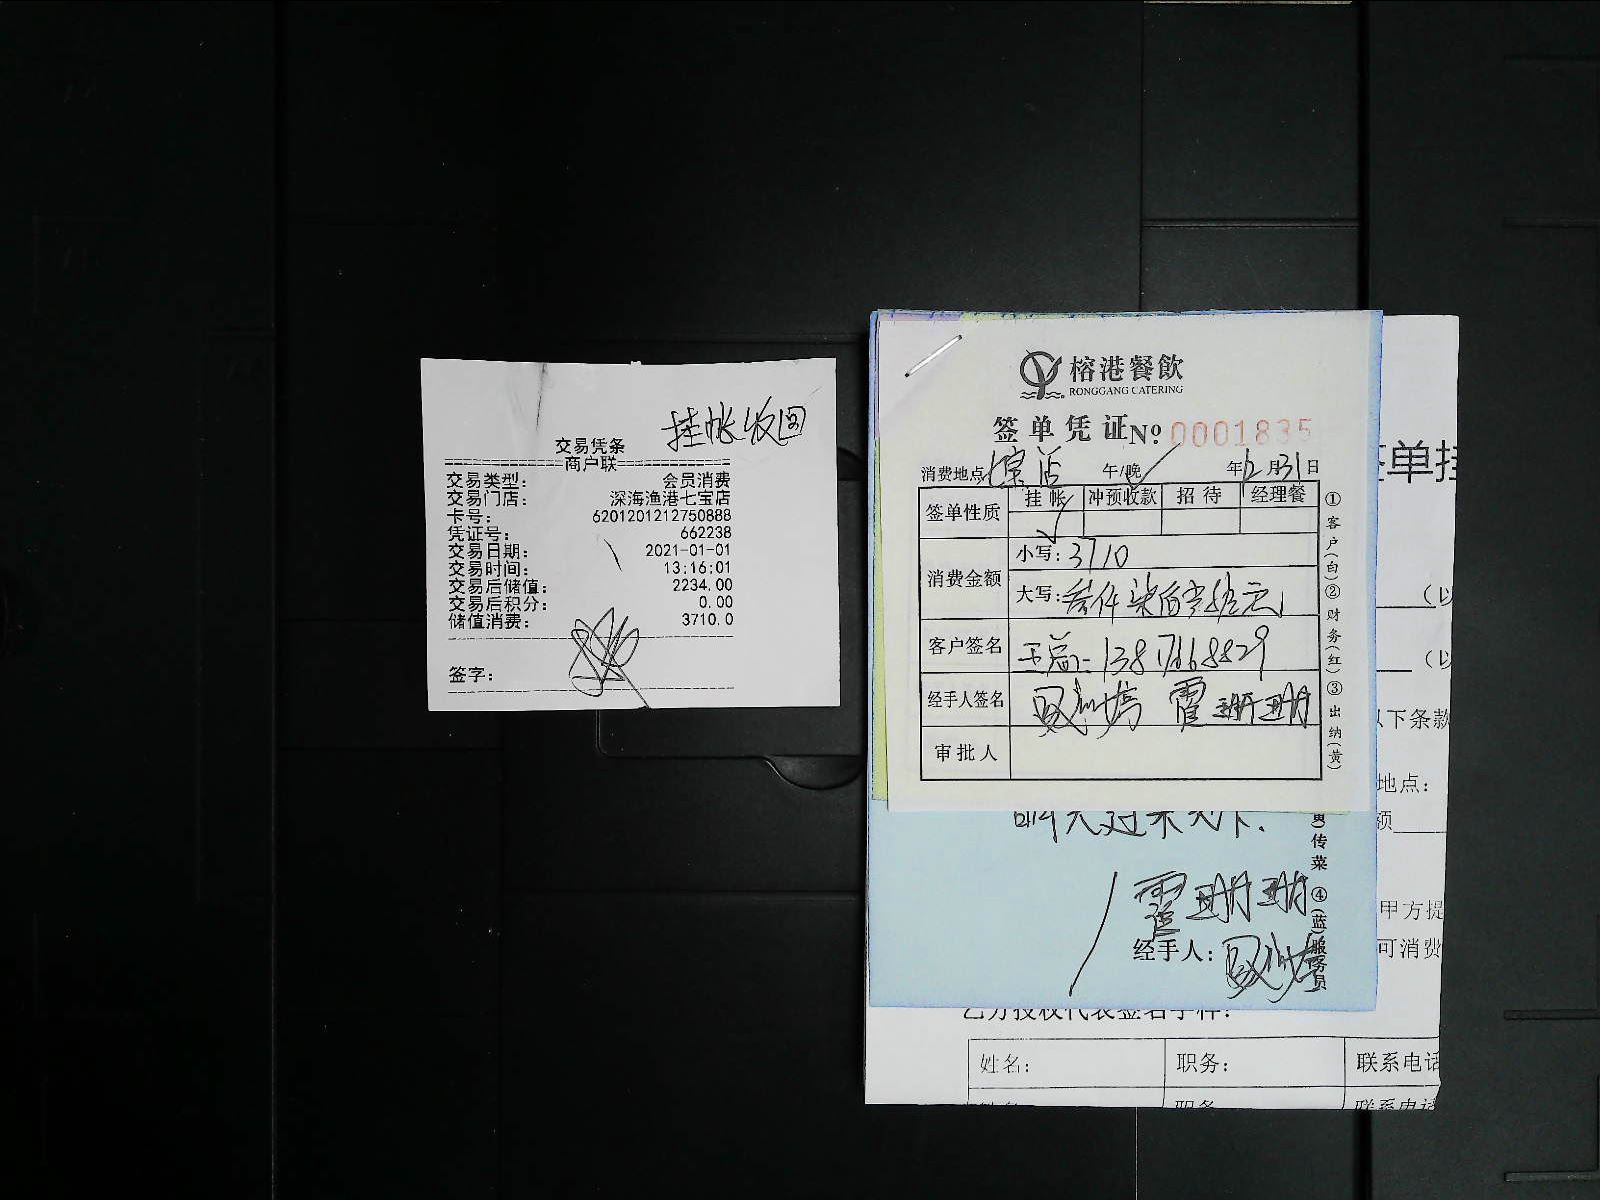 挂帐收回
交易凭条
商户联
交易类型： 会员消费
交易门店： 深海渔港七宝店
卡号： 6201201212750888
凭证号： 662238
交易日期： 2021-01-01
交易时间： 13:16:01
交易后储值： 2234.00
交易后积分： 0.00
储值消费： 3710.0
签字：
榕港餐飲
RONGGANG CATERING
签单凭证 No. 0001835
消费地点 午/晚 年12月31日
签单性质 挂帐 冲预收款 招待 经理餐
消费金额 小写：3710
大写：
客户签名 王总
经手人签名 霍珊珊
审批人
①客户(白)②财务(红)③出纳(黄)
传菜④(蓝)服务员
霍珊珊
经手人：
单挂
(以
(以
以下条款
地点：
额
甲方提
可消费
乙方授权代表签名字样：
姓名： 职务： 联系电话